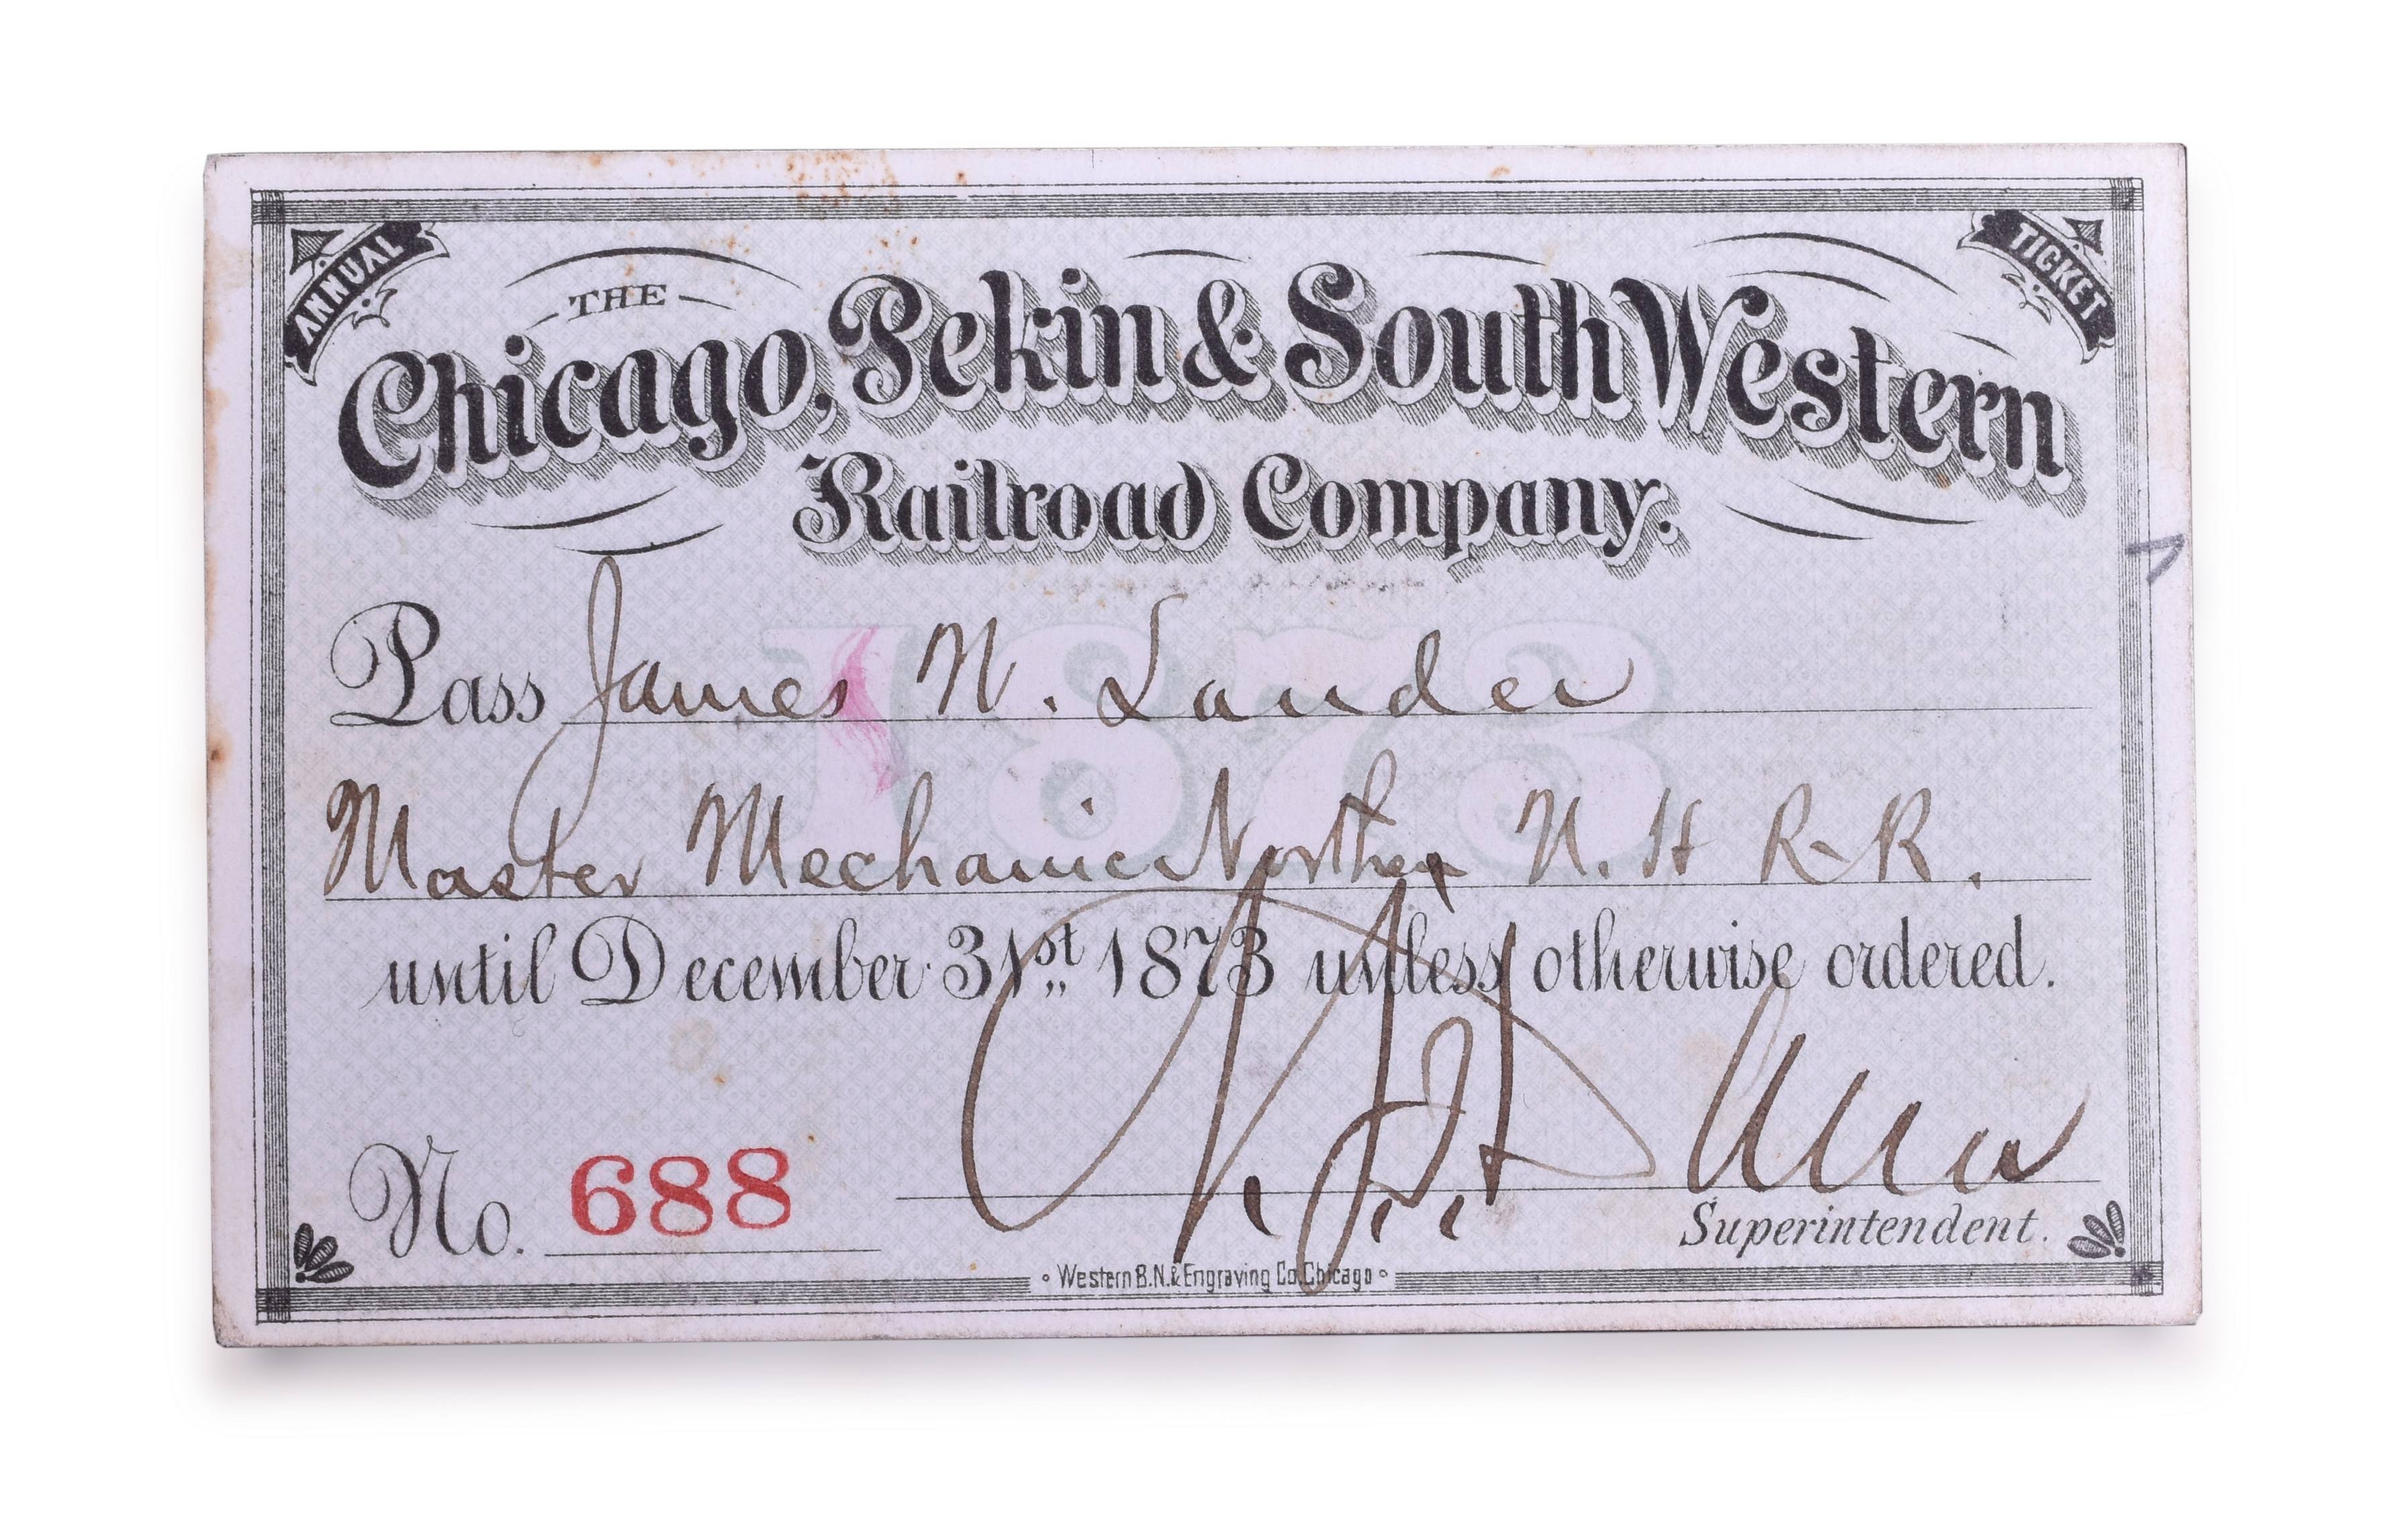 ANNUAL
TICKET
THE
Chicago, Pekin & South Western
Railroad Company.
1873
Pass James N. Lander
Master Mechanic Northern N. H R-R.
until December 31st 1873 unless otherwise ordered.
No. 688
Superintendent.
Western B.N. & Engraving Co. Chicago